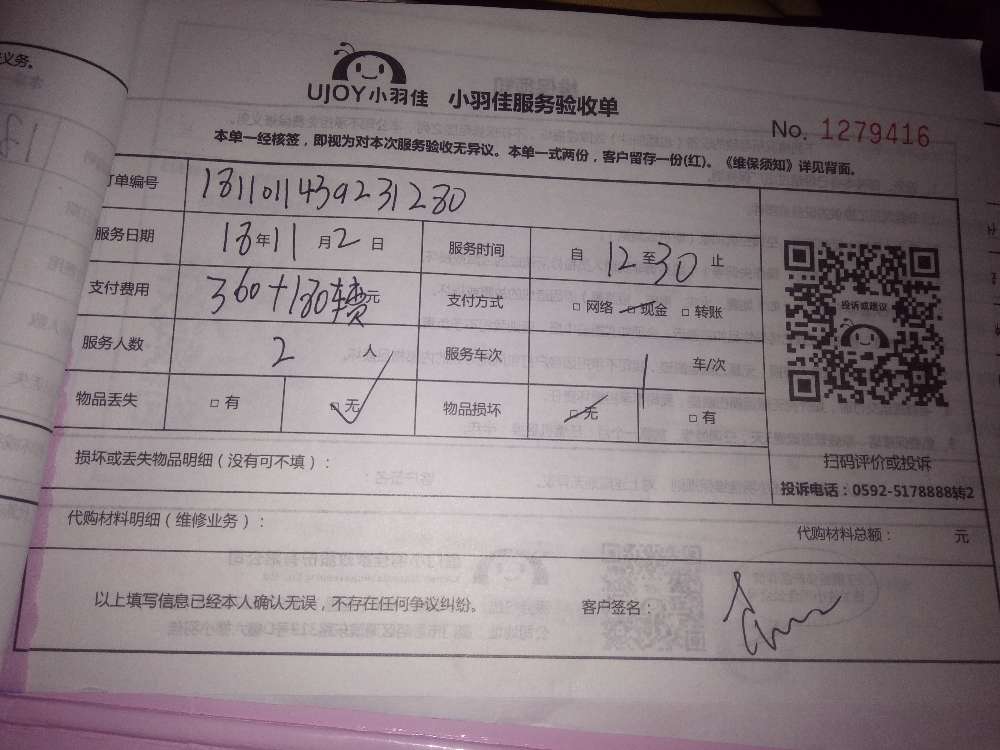 义务。
UJOY小羽佳 小羽佳服务验收单
No. 1279416
本单一经核签，即视为对本次服务验收无异议。本单一式两份，客户留存一份(红)。《维保须知》详见背面。
订单编号 1811011439231280
服务日期 18年11月2日 服务时间 自12至30止
支付费用 360+180 元 支付方式 □网络 □现金 □转账
服务人数 2 人 服务车次 1 车/次
物品丢失 □有 □无 物品损坏 □无 □有
投诉或建议
扫码评价或投诉
投诉电话：0592-5178888转2
损坏或丢失物品明细（没有可不填）：
代购材料明细（维修业务）： 代购材料总额： 元
以上填写信息已经本人确认无误，不存在任何争议纠纷。 客户签名：